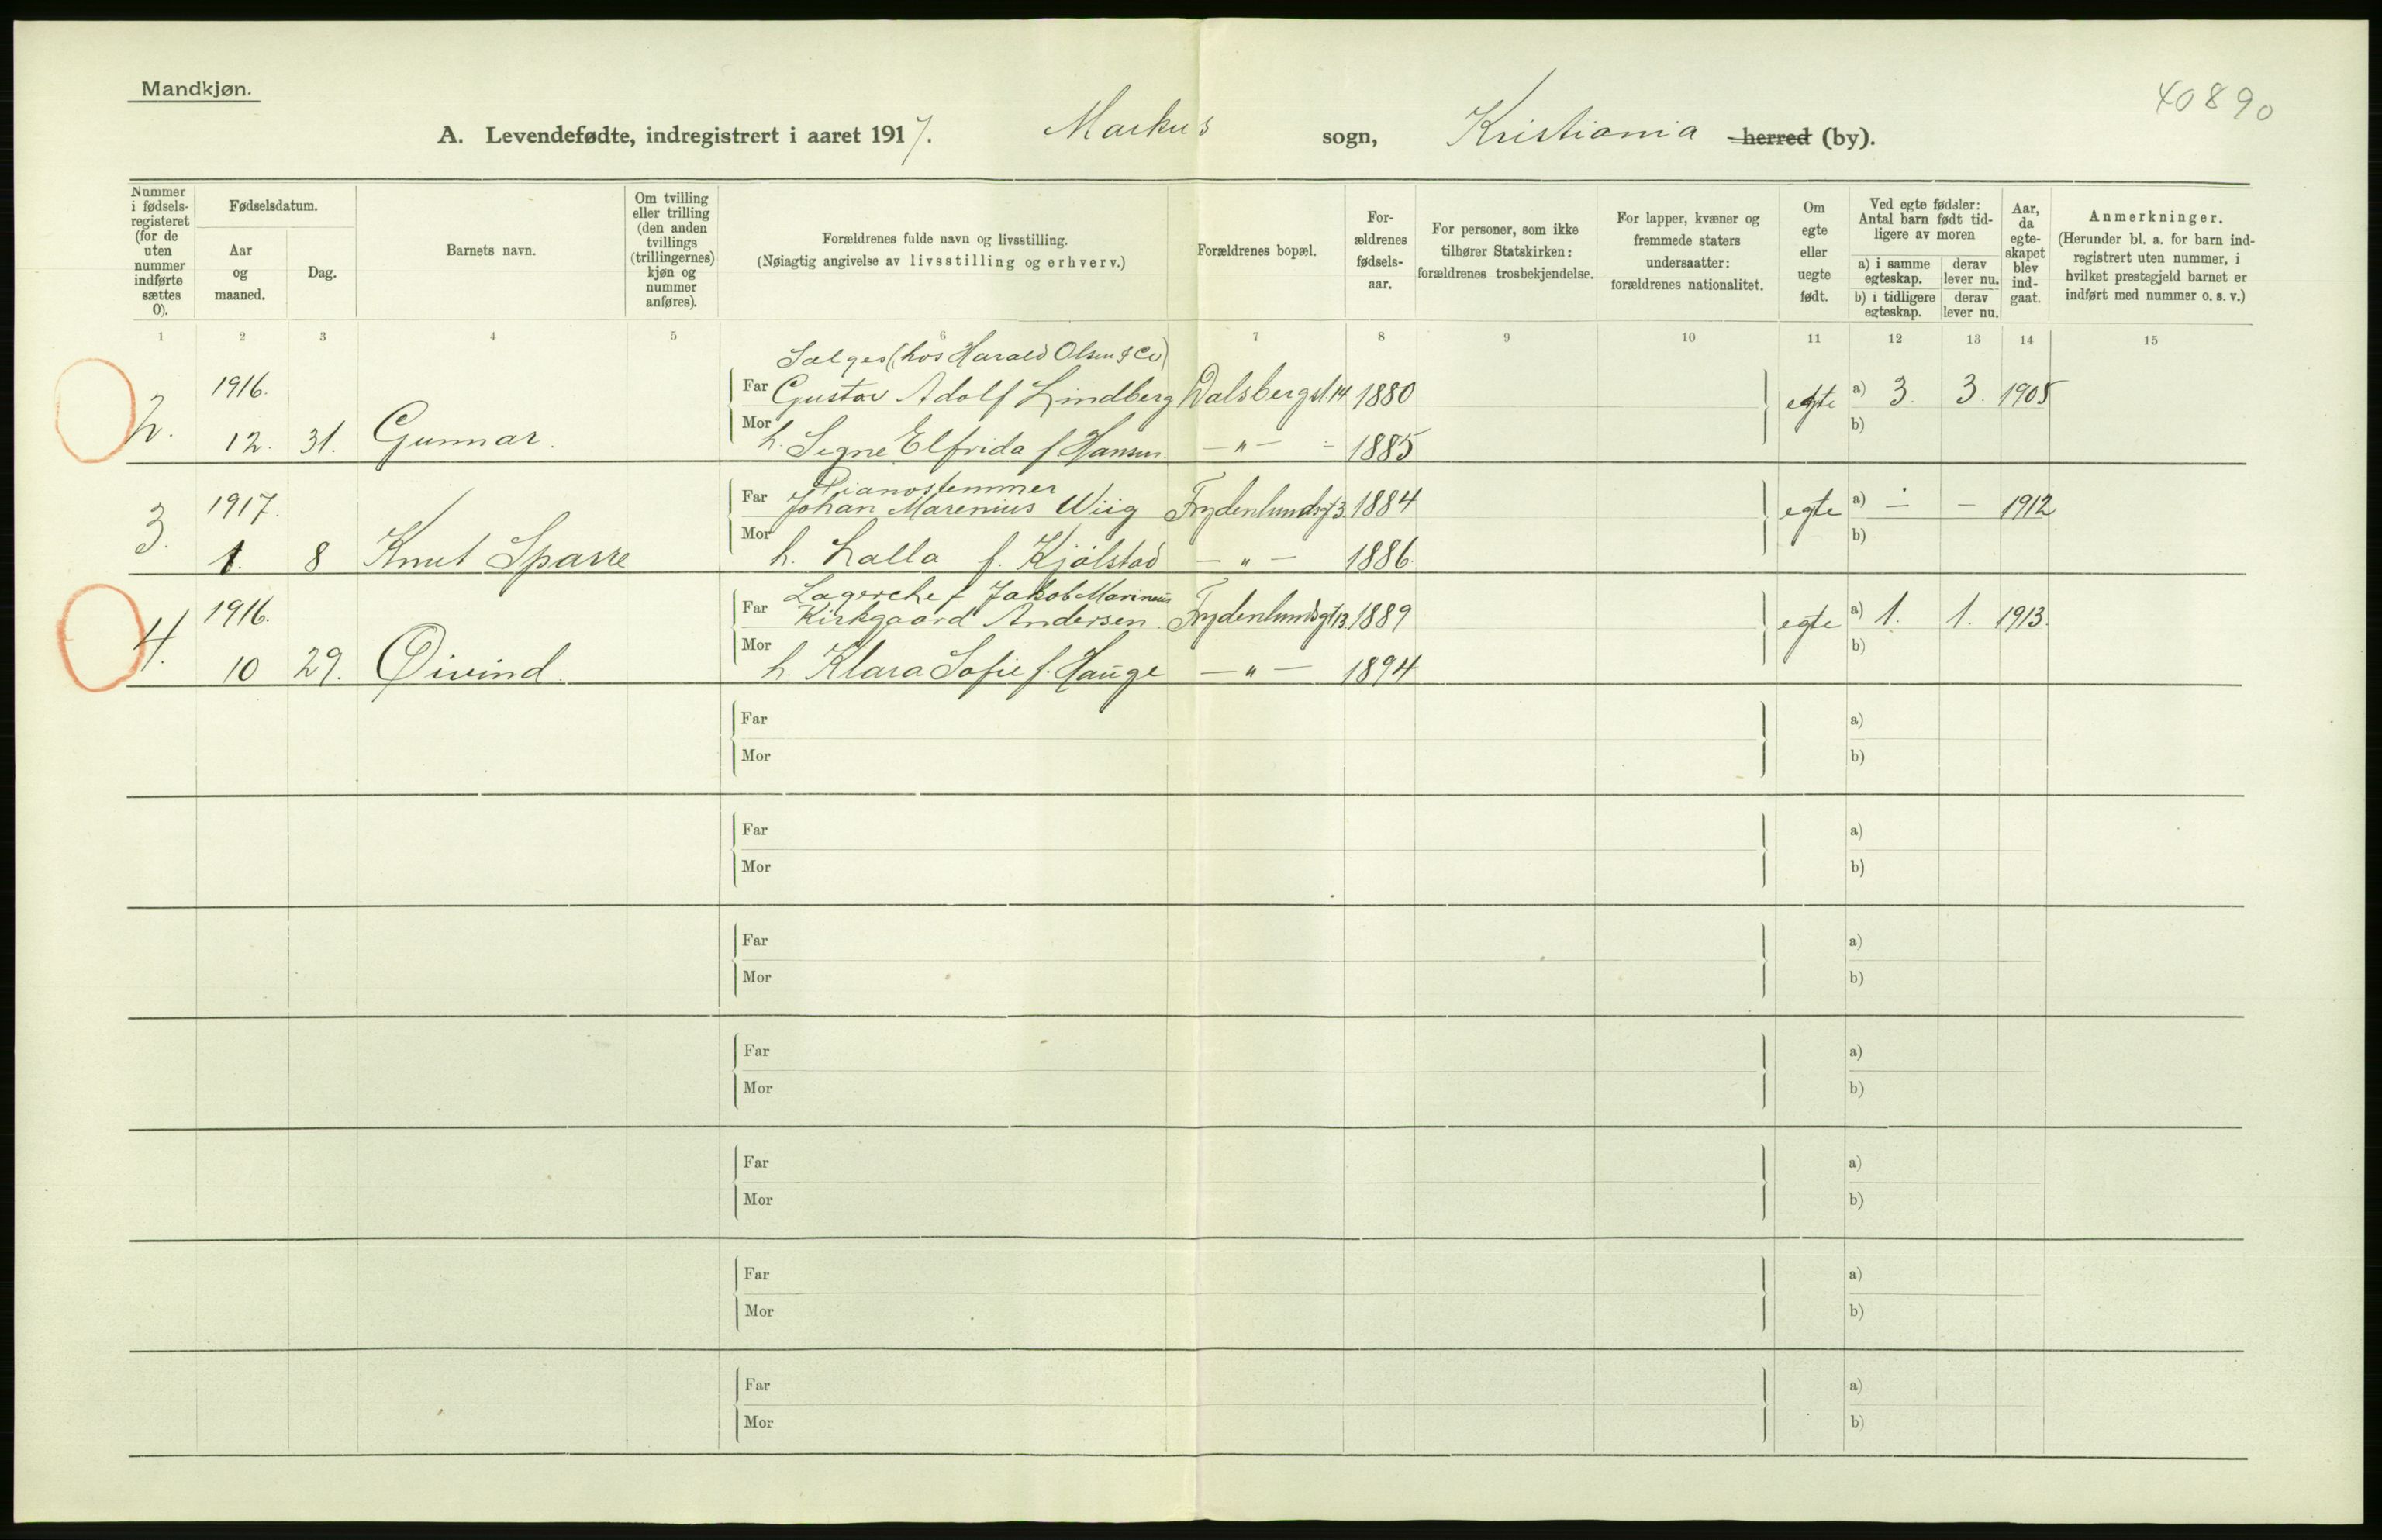 Mandkjøn.
40890
A. Levendefødte, indregistrert i aaret 1917. Markus sogn, Kristiania herred (by).
Nummer i fødsels-registeret (for de uten nummer indførte sættes 0).
Fødselsdatum.
Aar og maaned.
Dag.
Barnets navn.
Om tvilling eller trilling (den anden tvillings (trillingernes) kjøn og nummer anføres).
Forældrenes fulde navn og livsstilling.
(Nøiagtig angivelse av livsstilling og erhverv.)
Forældrenes bopæl.
For-ældrenes fødsels-aar.
For personer, som ikke tilhører Statskirken: forældrenes trosbekjendelse.
For lapper, kvæner og fremmede staters undersaatter: forældrenes nationalitet.
Om egte eller uegte født.
Ved egte fødsler: Antal barn født tid-ligere av moren
a) i samme egteskap.
derav lever nu.
b) i tidligere egteskap.
derav lever nu.
Aar, da egte-skapet blev ind-gaat.
Anmerkninger.
(Herunder bl. a. for barn ind-registrert uten nummer, i hvilket prestegjeld barnet er indført med nummer o. s. v.)
1 2 3 4 5 6 7 8 9 10 11 12 13 14 15
Sælges (hos Harald Olsen & Co)
2. 1916. Far Gustav Adolf Lindberg Dalsbergst. 14 1880 egte a) 3. 3. 1905
12. 31. Gunnar. Mor h. Signe Elfrida f. Hansen. — " — 1885 b)
Pianostemmer
3. 1917. Far Johan Marenius Wiig Frydenlundsgt 3. 1884 egte a) — — 1912
1. 8 Knut Sparre Mor h. Lalla f. Kjølstad — " — 1886. b)
Lagerchef Jakob Marineus
4. 1916. Far Kirkgaard Andersen. Frydenlundsgt 13. 1889 egte a) 1. 1. 1913.
10 29. Øivind. Mor h. Klara Sofie f. Hauge — " — 1894 b)
Far a)
Mor b)
Far a)
Mor b)
Far a)
Mor b)
Far a)
Mor b)
Far a)
Mor b)
Far a)
Mor b)
Far a)
Mor b)